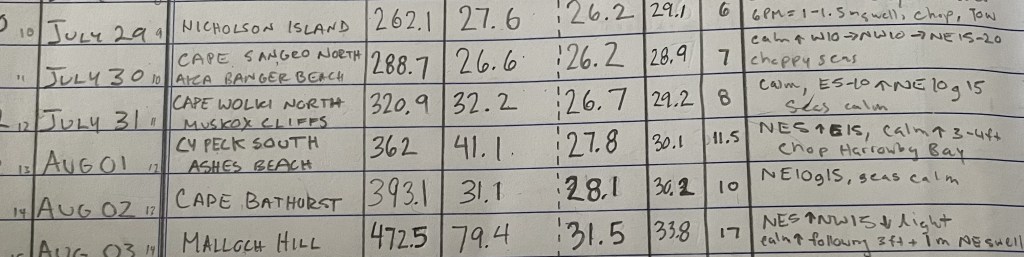 10 JULY 29 9 NICHOLSON ISLAND 262.1 27.6 26.2 29.1 6 6PM = 1-1.5m swell, chop, Tow
calm ↑ W10 → NW10 → NE 15-20
11 JULY 30 10 CAPE SANGRO NORTH 288.7 26.6 26.2 28.9 7 choppy seas
AKA BANGER BEACH
12 JULY 31 11 CAPE WOLKI NORTH 320.9 32.2 26.7 29.2 8 Calm, E5-10 ↑ NE 10g15
MUSKOX CLIFFS seas calm
13 AUG 01 12 CY PECK SOUTH 362 41.1 27.8 30.1 11.5 NE5 ↑ E15, calm ↑ 3-4ft
ASHES BEACH Chop Harrowby Bay
14 AUG 02 CAPE BATHURST 393.1 31.1 28.1 30.2 10 NE10g15, seas calm
AUG 03 14 MALLOCH HILL 472.5 79.4 31.5 33.8 17 NE5 ↑ NW15 ↓ light
calm ↑ following 3ft + 1m NE swell